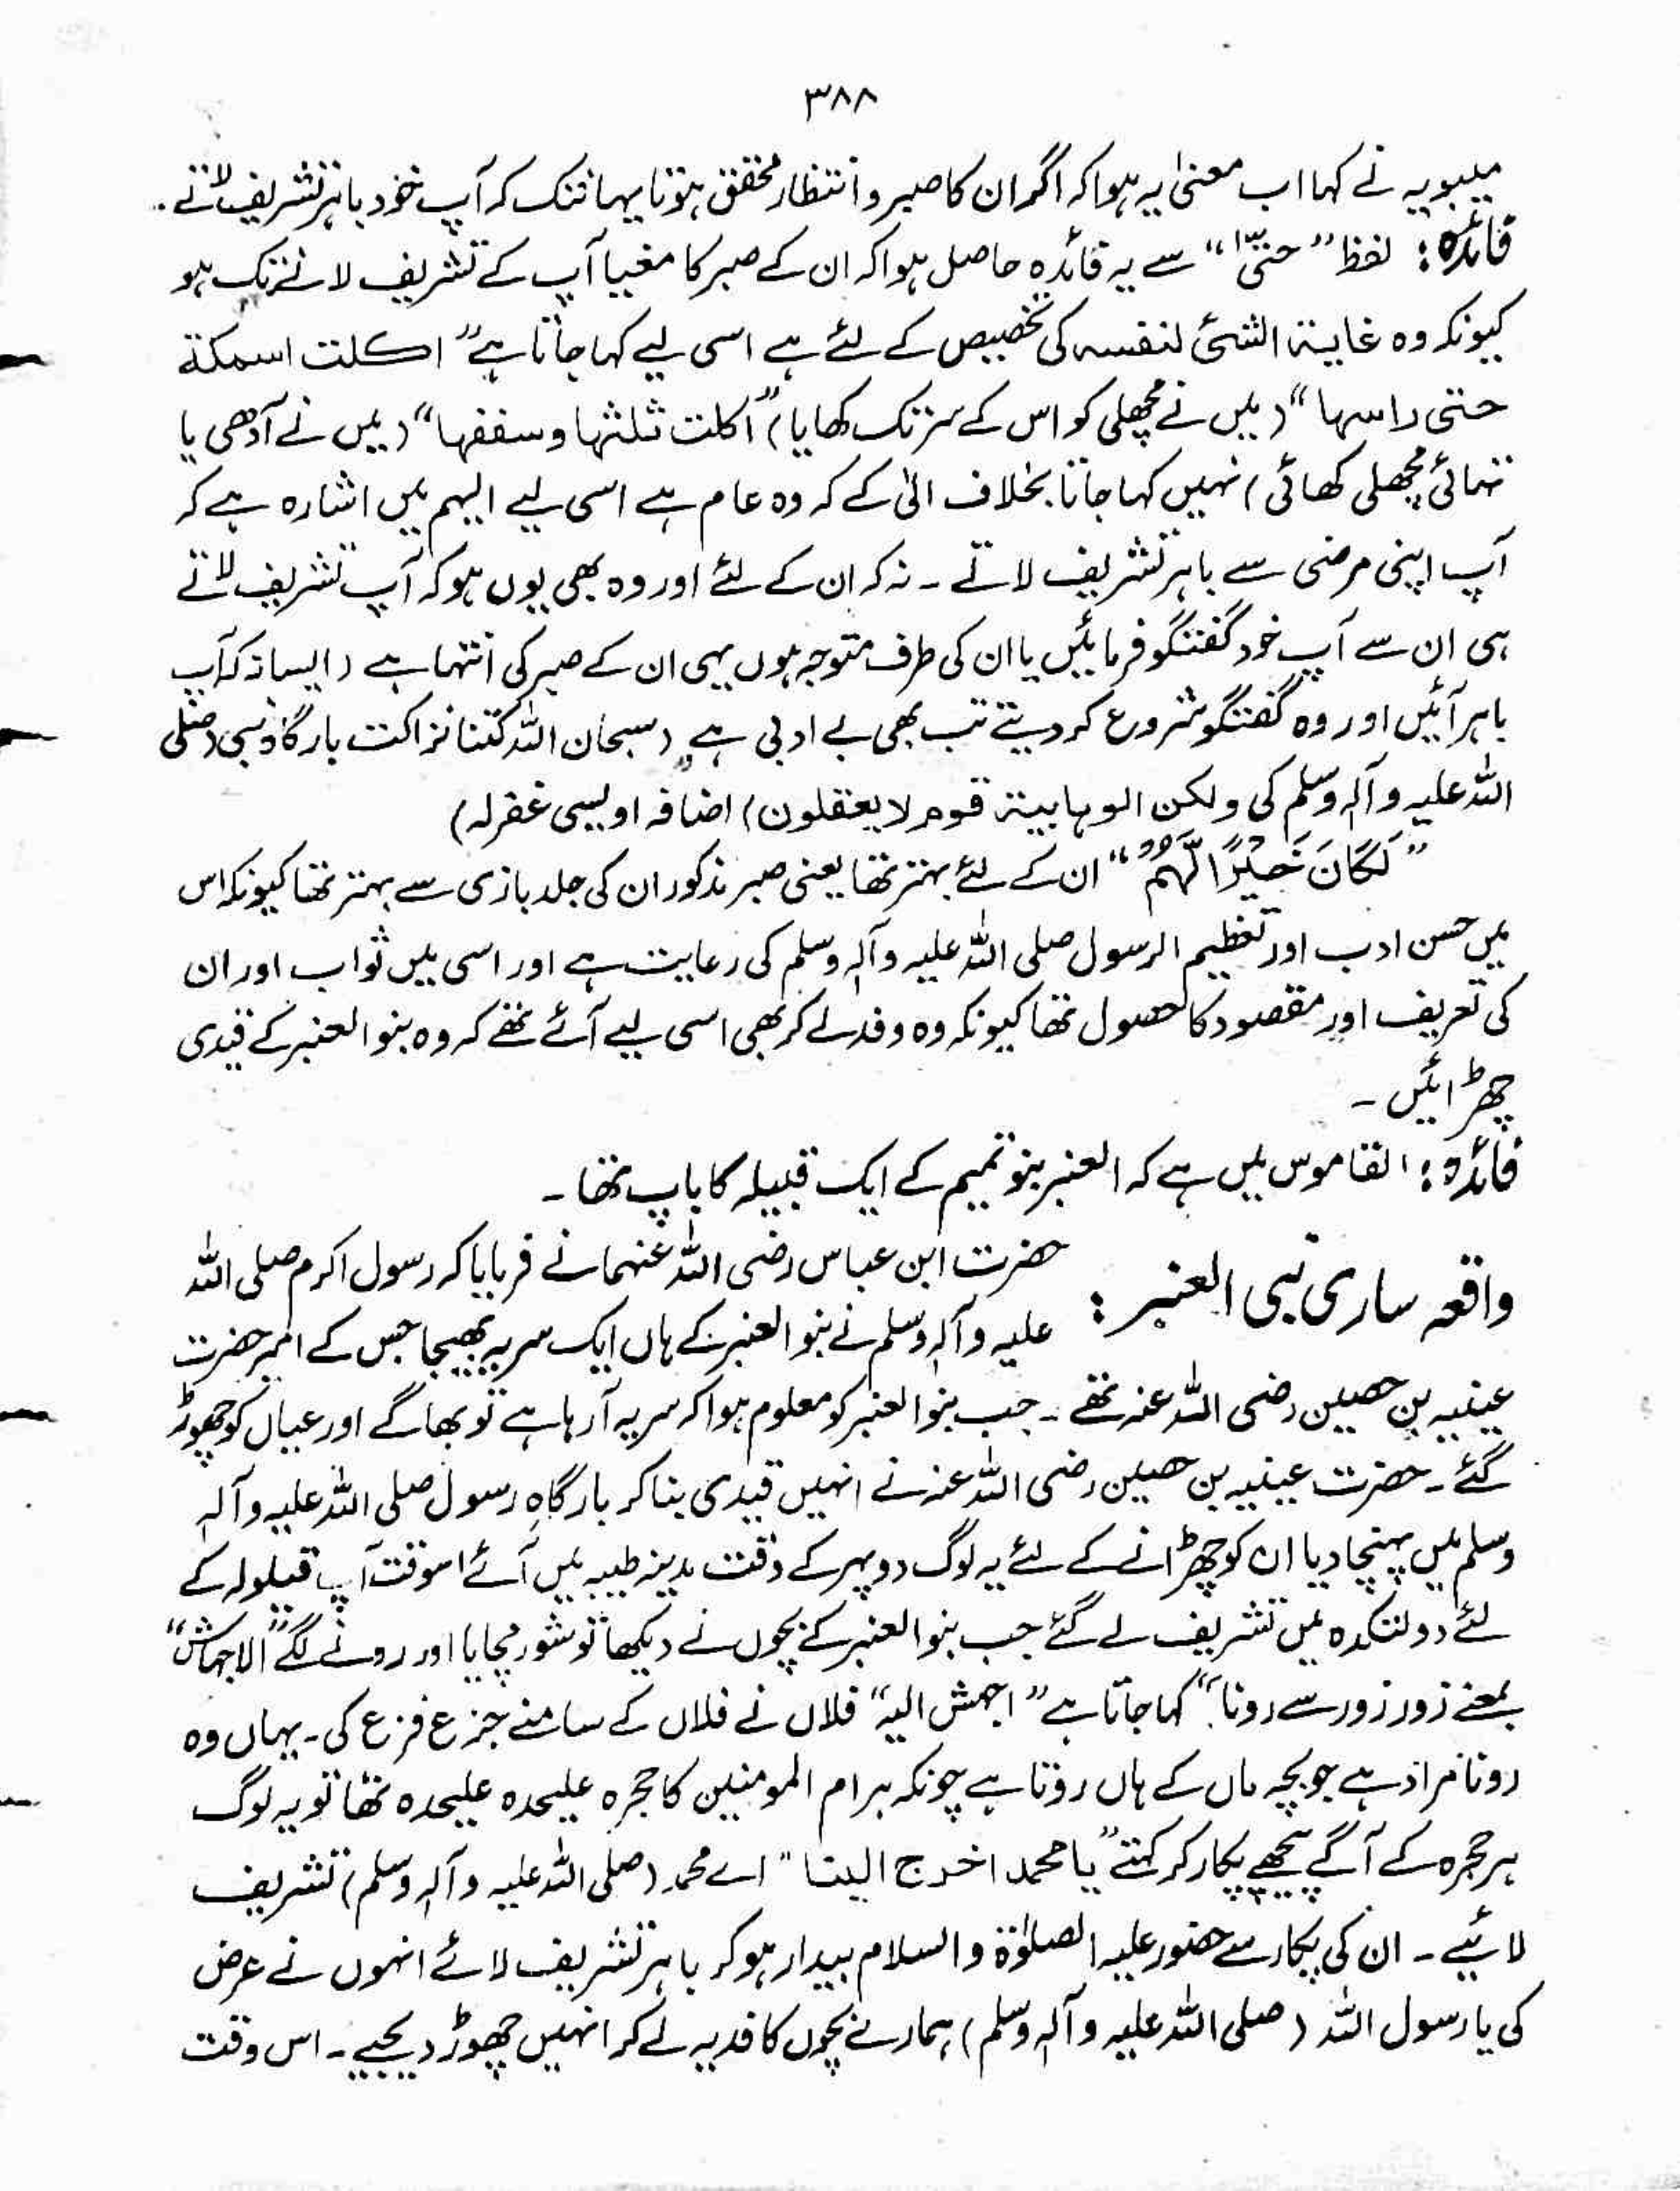 ۳۸۸
سیبویہ نے کہا اب معنیٰ یہ ہوا کہ اگر ان کا صبر و انتظار محقق ہوتا یہانتک کہ آپ خود باہر تشریف لاتے ۔
فائدہ : لفظ ”حتیّٰ“ سے یہ فائدہ حاصل ہوا کہ ان کے صبر کا مغیا آپ کے تشریف لانے تک ہو
کیونکہ وہ غایۃ الشئ لنفسہ کی تخصیص کے لئے ہے اسی لیے کہا جاتا ہے ”اکلت اسمکۃ
حتی راسہا“ (میں نے مچھلی کو اس کے سر تک کھایا) ”اکلت ثلثہا و سففہا“ (میں نے آدھی یا
تہائی مچھلی کھائی) نہیں کہا جاتا بخلاف الیٰ کے کہ وہ عام ہے اسی لیے الیہم میں اشارہ ہے کہ
آپ اپنی مرضی سے باہر تشریف لاتے ۔ نہ کہ ان کے لئے اور وہ بھی یوں ہو کہ آپ تشریف لاتے
ہی ان سے آپ خود گفتگو فرمائیں یا ان کی طرف متوجہ ہوں یہی ان کے صبر کی انتہا ہے (ایسا نہ کہ آپ
باہر آئیں اور وہ گفتگو شروع کر دیتے تب بھی بے ادبی ہے (سبحان اللہ کتنا نزاکت بارگاہ نبی (صلی
اللہ علیہ وآلہٖ وسلم کی ولکن الوہابیۃ قوم لا یعقلون) اضافہ اویسی غفرلہ)
”لَكَانَ خَيْرًا لَّهُمْ“ ان کے لئے بہتر تھا یعنی صبر مذکور ان کی جلد بازی سے بہتر تھا کیونکہ اس
میں حسن ادب اور تعظیم الرسول صلی اللہ علیہ وآلہٖ وسلم کی رعایت ہے اور اسی میں ثواب اور ان
کی تعریف اور مقصود کا حصول تھا کیونکہ وہ وفد لے کر بھی اسی لیے آئے تھے کہ وہ بنو العنبر کے قیدی
چھڑائیں ۔
فائدہ : القاموس میں ہے کہ العنبر بنو تمیم کے ایک قبیلہ کا باپ تھا ۔
واقعہ ساری نبی العنبر : حضرت ابن عباس رضی اللہ عنہما نے فرمایا کہ رسول اکرم صلی اللہ
علیہ وآلہٖ وسلم نے بنو العنبر کے ہاں ایک سریہ بھیجا جس کے امیر حضرت
عینیہ بن حصین رضی اللہ عنہ تھے ۔ جب بنو العنبر کو معلوم ہوا کہ سریہ آ رہا ہے تو بھاگے اور عیال کو چھوڑ
گئے ۔ حضرت عینیہ بن حصین رضی اللہ عنہ نے انہیں قیدی بنا کر بارگاہِ رسول صلی اللہ علیہ وآلہٖ
وسلم میں پہنچا دیا ان کو چھڑانے کے لئے یہ لوگ دوپہر کے وقت مدینہ طیبہ میں آئے اسوقت آپ قیلولہ کے
لئے دولتکدہ میں تشریف لے گئے جب بنو العنبر کے بچوں نے دیکھا تو شور مچایا اور رونے لگے ”الاجہاش“
بمعنے زور زور سے رونا“ کہا جاتا ہے ”اجہش الیہ“ فلاں نے فلاں کے سامنے جزع فزع کی ۔ یہاں وہ
رونا مراد ہے جو بچہ ماں کے ہاں روتا ہے چونکہ ہر ام المومنین کا حجرہ علیحدہ علیحدہ تھا تو یہ لوگ
ہر حجرہ کے آگے پیچھے پکار کر کہتے ”یا محمد اخرج الینا“ اے محمد (صلی اللہ علیہ وآلہٖ وسلم) تشریف
لائیے ۔ ان کی پکار سے حضور علیہ الصلوٰۃ والسلام بیدار ہو کر باہر تشریف لائے انہوں نے عرض
کی یا رسول اللہ (صلی اللہ علیہ وآلہٖ وسلم) ہمارے بچوں کا فدیہ لے کر انہیں چھوڑ دیجیے ۔ اس وقت